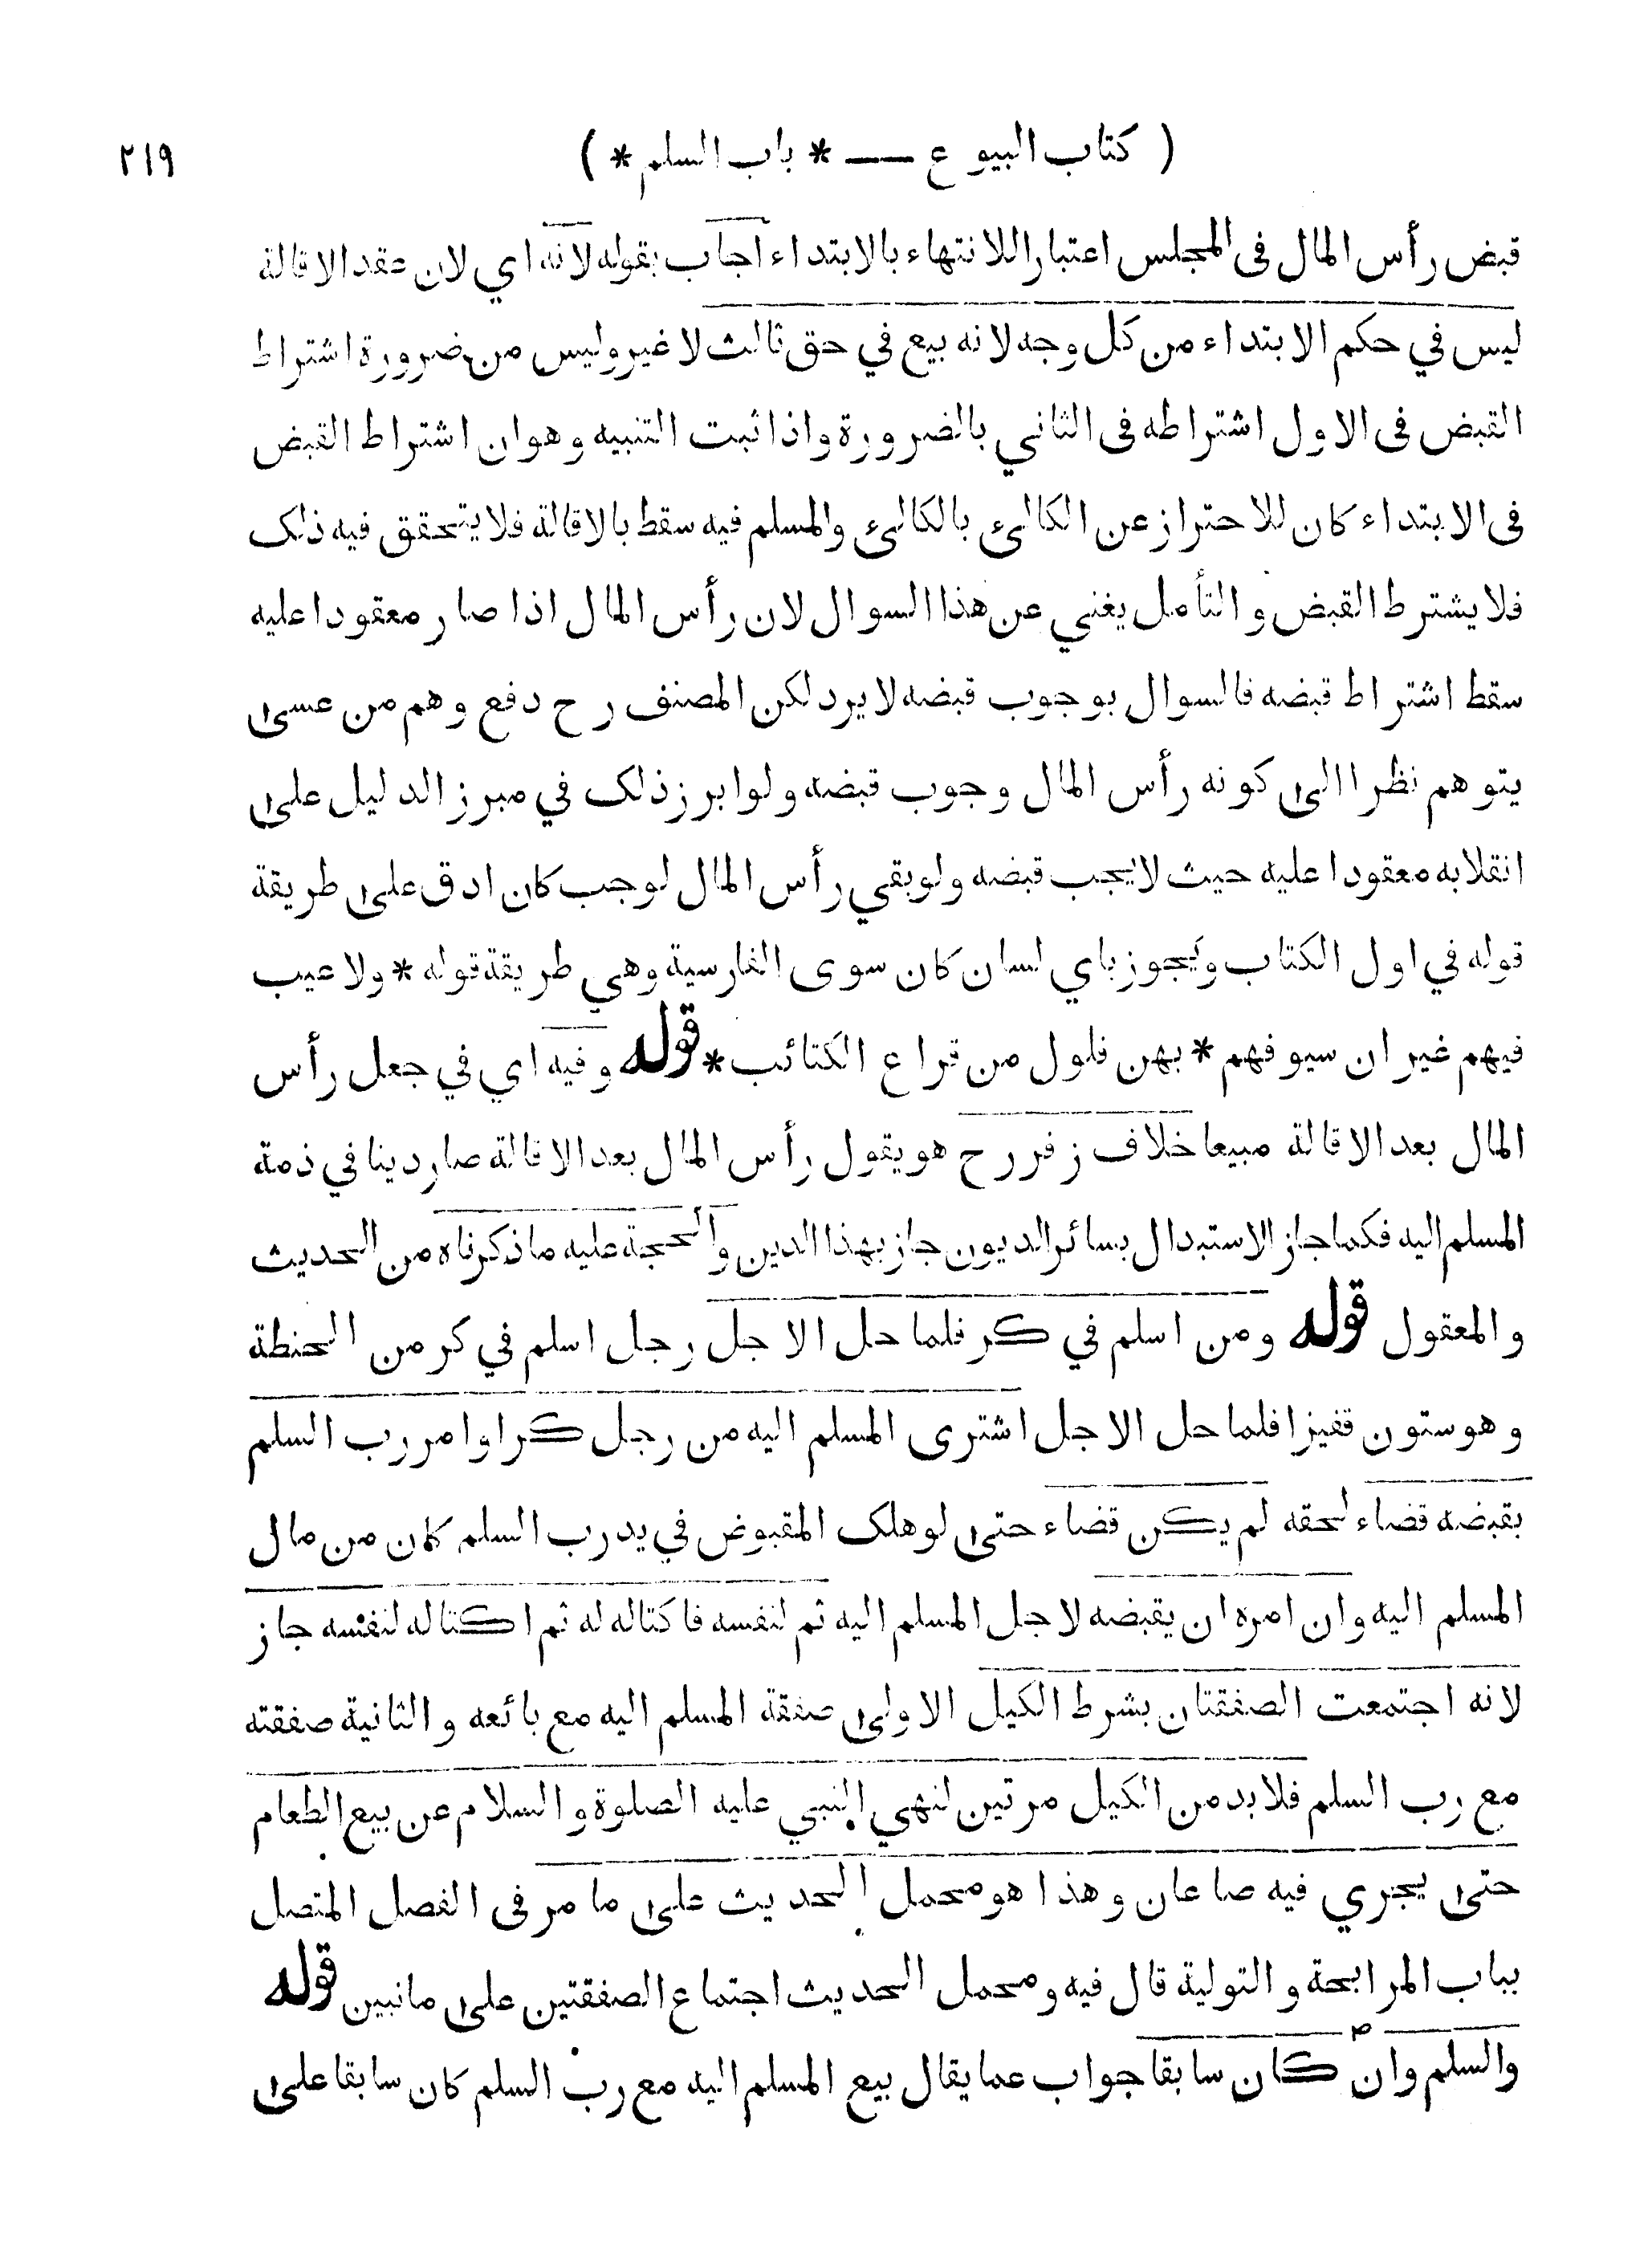 ( كتاب البيوع — * باب السلم * )
٢١٩
قبض رأس المال فى المجلس اعتبارا للانتهاء بالابتداء اجاب بقوله لانه اي لان عقد الاقالة
ليس في حكم الابتداء من كل وجه لانه بيع في حق ثالث لا غير وليس من ضرورة اشتراط
القبض فى الاول اشتراطه فى الثاني بالضرورة واذا ثبت التنبيه وهو ان اشتراط القبض
فى الابتداء كان للاحتراز عن الكالئ بالكالئ والمسلم فيه سقط بالاقالة فلا يتحقق فيه ذلك
فلا يشترط القبض والتأمل يغني عن هذا السوال لان رأس المال اذا صار معقودا عليه
سقط اشتراط قبضه فالسوال بوجوب قبضه لا يرد لكن المصنف رح دفع وهم من عسى
يتوهم نظرا الى كونه رأس المال وجوب قبضه ولو ابرز ذلك في مبرز الدليل على
انقلابه معقودا عليه حيث لا يجب قبضه ولو بقي رأس المال لوجب كان ادق على طريقة
قوله في اول الكتاب ويجوز باي لسان كان سوى الفارسية وهي طريقة قوله * ولا عيب
فيهم غير ان سيوفهم * بهن فلول من قراع الكتائب * قوله وفيه اي في جعل رأس
المال بعد الاقالة مبيعا خلاف زفر رح هو يقول رأس المال بعد الاقالة صار دينا في ذمة
المسلم اليه فكما جاز الاستبدال بسائر الديون جاز بهذا الدين والحجة عليه ما ذكرناه من الحديث
والمعقول قوله ومن اسلم في كر فلما حل الاجل رجل اسلم في كر من الحنطة
وهو ستون قفيزا فلما حل الاجل اشترى المسلم اليه من رجل كرا وامر رب السلم
بقبضه قضاء لحقه لم يكن قضاء حتى لو هلك المقبوض في يد رب السلم كان من مال
المسلم اليه وان امره ان يقبضه لاجل المسلم اليه ثم لنفسه فاكتاله له ثم اكتاله لنفسه جاز
لانه اجتمعت الصفقتان بشرط الكيل الاولى صفقة المسلم اليه مع بائعه والثانية صفقته
مع رب السلم فلا بد من الكيل مرتين لنهي النبي عليه الصلوة والسلام عن بيع الطعام
حتى يجري فيه صاعان وهذا هو محمل الحديث على ما مر فى الفصل المتصل
بباب المرابحة والتولية قال فيه ومحمل الحديث اجتماع الصفقتين على ما نبين قوله
والسلم وان كان سابقا جواب عما يقال بيع المسلم اليه مع رب السلم كان سابقا على